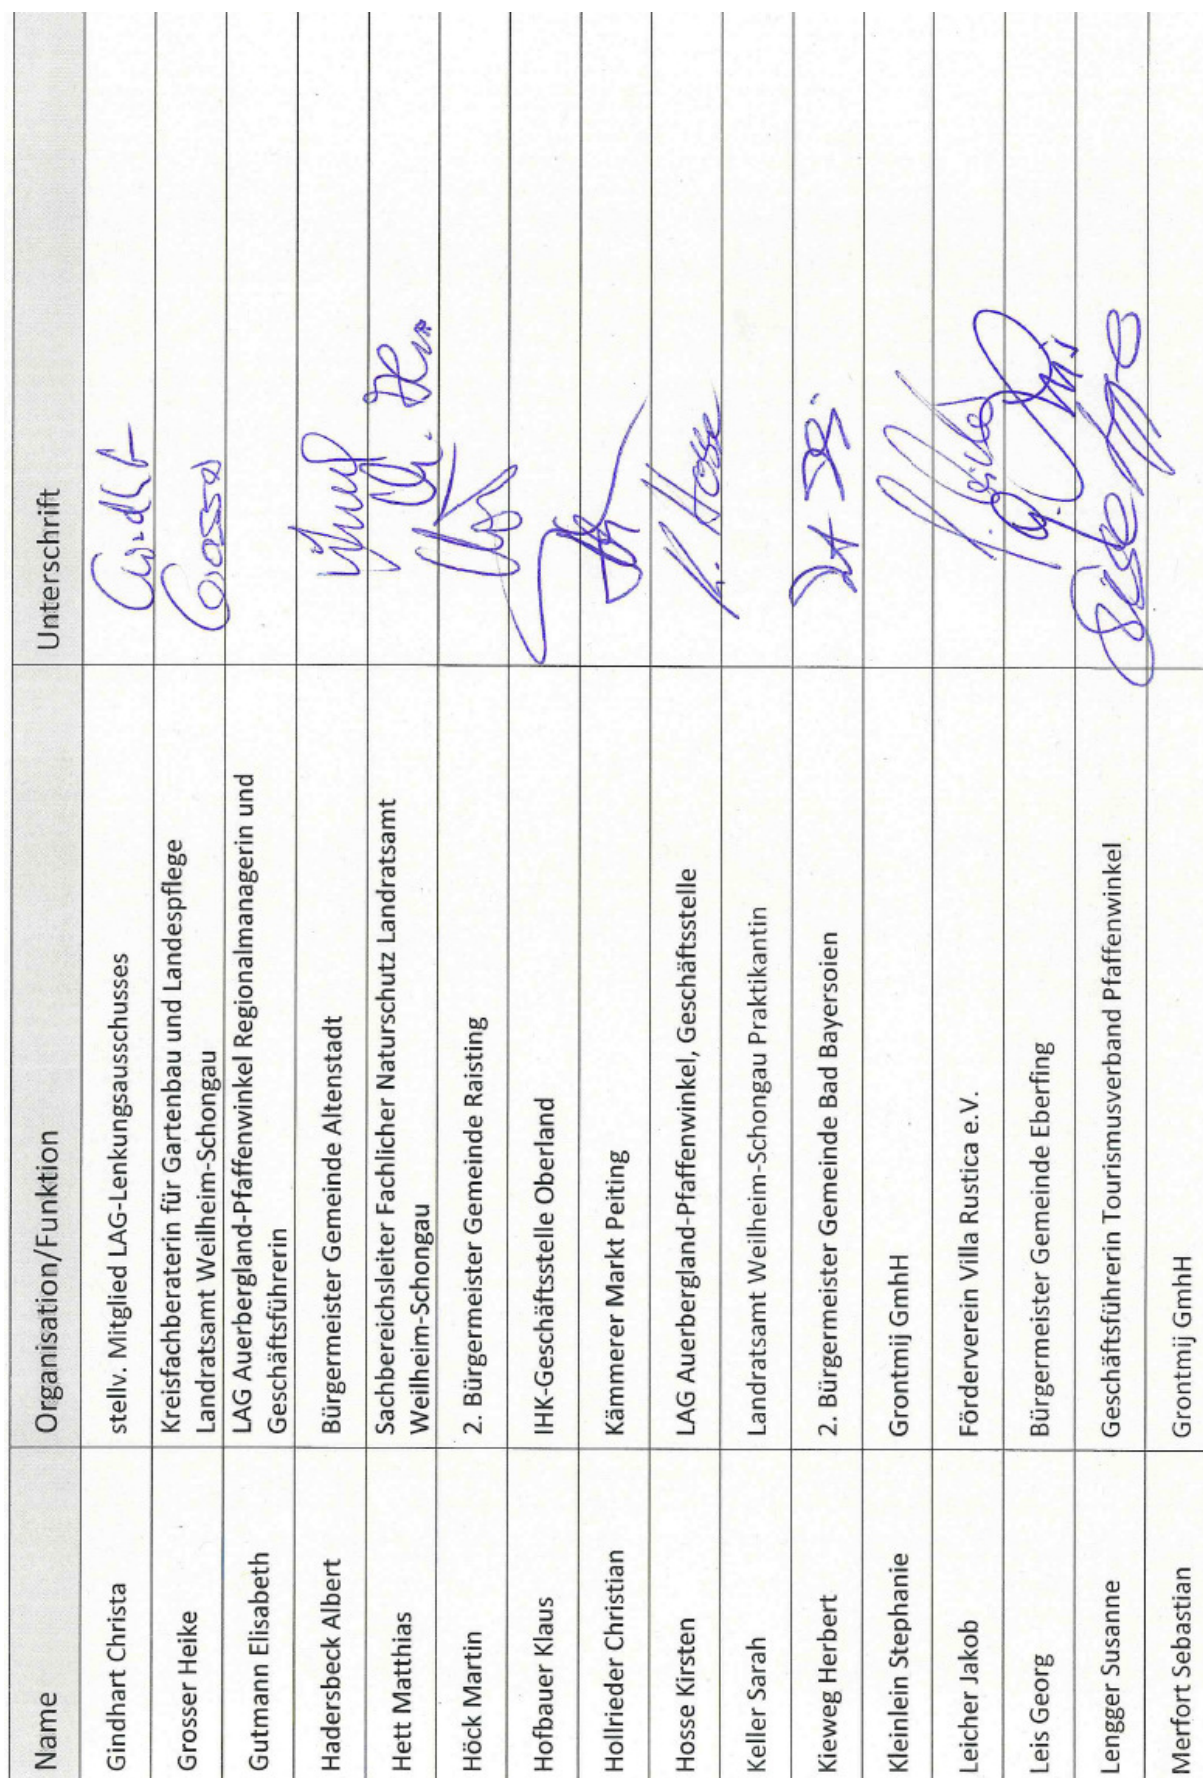 Name Organisation/Funktion Unterschrift
Gindhart Christa stellv. Mitglied LAG-Lenkungsausschusses
Grosser Heike Kreisfachberaterin für Gartenbau und Landespflege
Landratsamt Weilheim-Schongau Grosser
Gutmann Elisabeth LAG Auerbergland-Pfaffenwinkel Regionalmanagerin und
Geschäftsführerin
Hadersbeck Albert Bürgermeister Gemeinde Altenstadt
Hett Matthias Sachbereichsleiter Fachlicher Naturschutz Landratsamt
Weilheim-Schongau
Höck Martin 2. Bürgermeister Gemeinde Raisting
Hofbauer Klaus IHK-Geschäftsstelle Oberland
Hollrieder Christian Kämmerer Markt Peiting
Hosse Kirsten LAG Auerbergland-Pfaffenwinkel, Geschäftsstelle K. Hosse
Keller Sarah Landratsamt Weilheim-Schongau Praktikantin
Kieweg Herbert 2. Bürgermeister Gemeinde Bad Bayersoien
Kleinlein Stephanie Grontmij GmhH
Leicher Jakob Förderverein Villa Rustica e.V.
Leis Georg Bürgermeister Gemeinde Eberfing
Lengger Susanne Geschäftsführerin Tourismusverband Pfaffenwinkel
Merfort Sebastian Grontmij GmhH